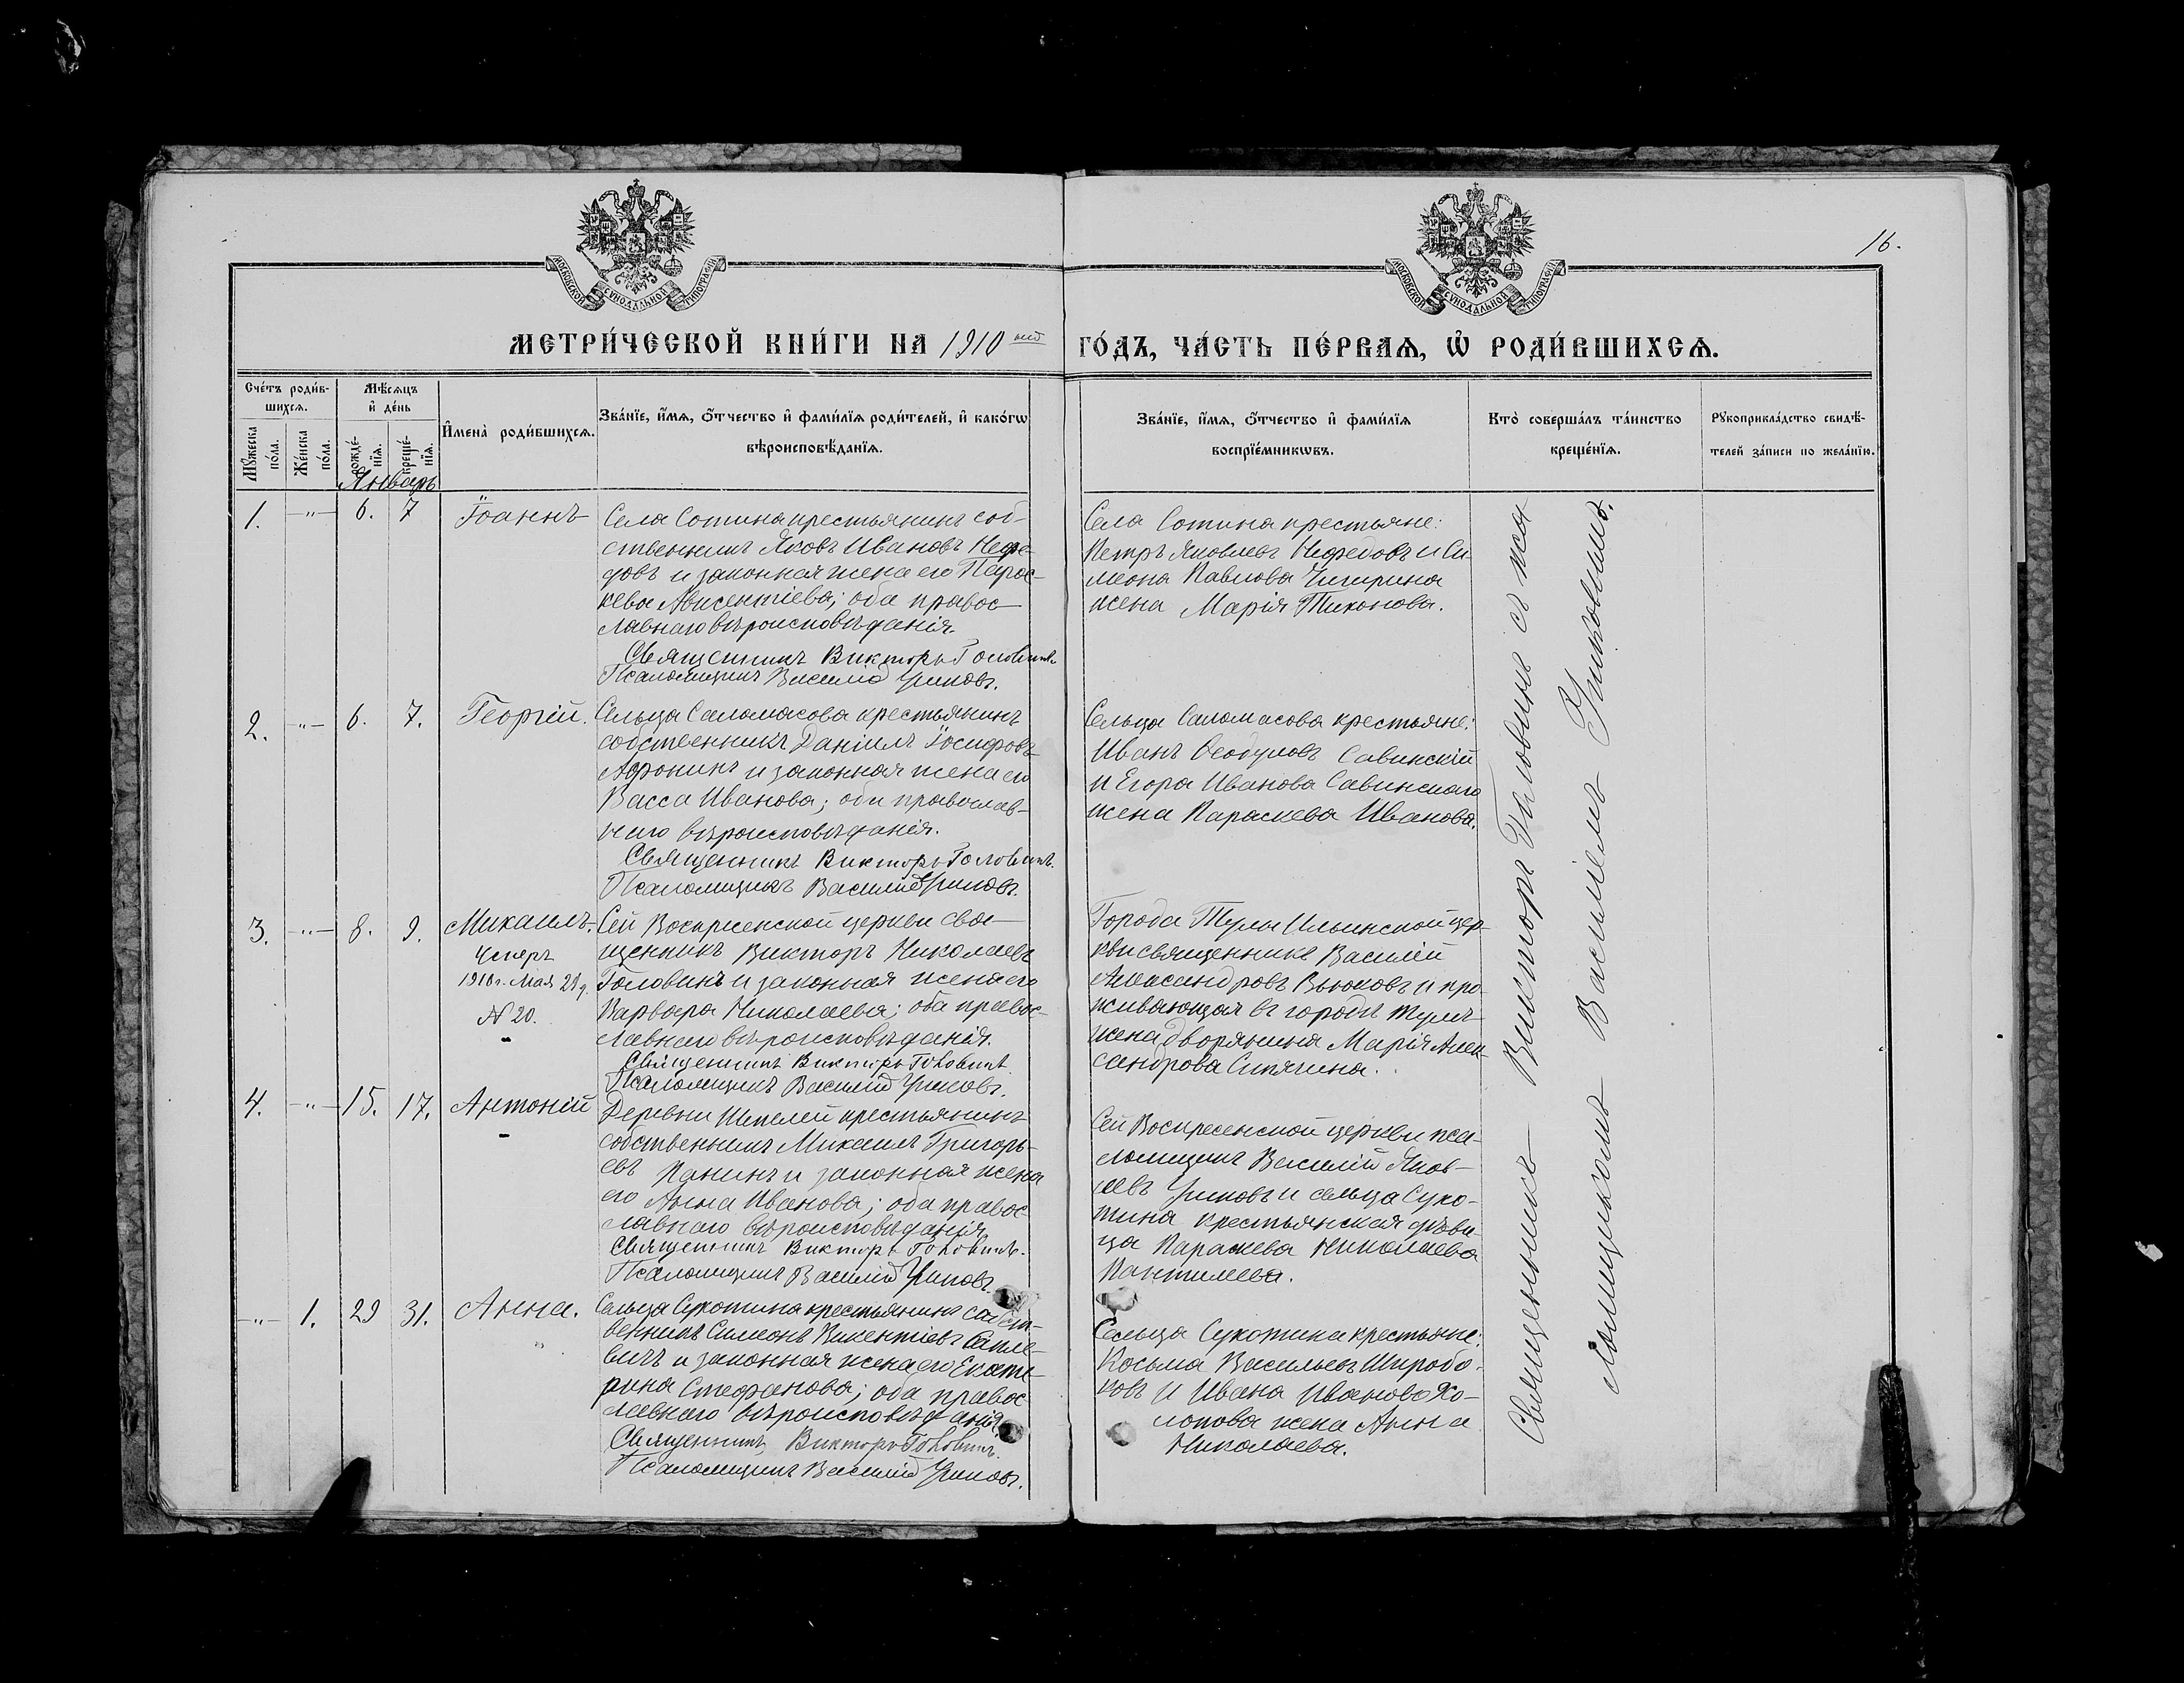 МОСКОВСКОЙ СѴНОДАЛЬНОЙ ТИПОГРАФІИ
МОСКОВСКОЙ СѴНОДАЛЬНОЙ ТИПОГРАФІИ
16.
МЕТРИ́ЧЕСКОЙ КНИ́ГИ НА 1910 ый ГО́ДЪ, ЧА́СТЬ ПЕ́РВАѦ, Ѡ҆ РОДИ́ВШИХСѦ.
Сче́тъ роди́в-
шихсѧ.
Мѣ́сѧцъ
и҆ де́нь
Мꙋ́жеска
по́ла.
Же́нска
по́ла.
рожде́-
нїѧ.
креще́-
нїѧ.
И҆мена̀ роди́вшихсѧ.
Зва́нїе, и҆́мѧ, ѻ҆́тчество и҆ фами́лїѧ роди́телей, и҆ како́гѡ
вѣроисповѣ́данїѧ.
Зва́нїе, и҆́мѧ, ѻ҆́тчество и҆ фами́лїѧ
воспрїе́мникѡвъ.
Кто̀ соверша́лъ та́инство
креще́нїѧ.
Рꙋкоприкла́дство свидѣ́-
телей за́писи по жела́нїю.
Январь
1. -"- 6. 7 Іоаннъ
Села Сотина крестьянинъ соб-
ственникъ Яковъ Ивановъ Нефе-
довъ и законная жена его Парас-
кева Авксентіева; оба правос-
лавнаго вѣроисповѣданія.
Священникъ Викторъ Головинъ.
Псаломщикъ Василій Униковъ.
Села Сотина крестьяне:
Петръ Яковлевъ Нефедовъ и Си
меона Павлова Чигирина
жена Марія Тихонова.
2. -"- 6. 7. Георгій.
Сельца Саломасова крестьянинъ
собственникъ Даніилъ Іосифовъ
Афонинъ и законная жена его
Васса Иванова; оба православ-
наго вѣроисповѣданія.
Священникъ Викторъ Головинъ.
Псаломщикъ Василій Униковъ.
Сельца Саломасова крестьяне:
Иванъ Ѳеодуловъ Савинскій
и Егора Иванова Савинскаго
жена Параскева Иванова.
3. -"- 8. 9. Михаилъ.
Умеръ
1910 г. Мая 28 д.
№ 20.
Сей Воскресенской церкви свя-
щенникъ Викторъ Николаевъ
Головинъ и законная жена его
Варвара Николаева; оба правос-
лавнаго вѣроисповѣданія.
Священникъ Викторъ Головинъ.
Псаломщикъ Василій Униковъ.
Города Тулы Ильинской цер-
кви священникъ Василій
Александровъ Вьюковъ и про-
живающая въ городѣ Тулѣ
жена дворянина Марія Алек-
сандрова
4. -"- 15. 17. Антоній
Деревни крестьянинъ
собственникъ Михаилъ Григорь-
евъ Панинъ и законная жена
его Анна Иванова; оба правос-
лавнаго вѣроисповѣданія
Священникъ Викторъ Головинъ.
Псаломщикъ Василій Униковъ.
Сей Воскресенской церкви пса-
ломщикъ Василій Яков-
левъ Униковъ и сельца Сухо-
тина крестьянская дѣви-
ца Параскева Николаева
Пантилеева.
-"- 1. 29 31. Анна.
Сельца Сухотина крестьянинъ собст-
венникъ Симеонъ Викентіевъ
и законная жена его Екате-
рина Стефанова; оба правос
лавнаго вѣроисповѣданія
Священникъ Викторъ Головинъ.
Псаломщикъ Василій Униковъ.
Сельца Сухотина крестьяне:
Косьма Васильевъ Широбо-
ковъ и Ивана Иванова Хо-
лопова жена Анна
Николаева.
Священникъ Викторъ Головинъ съ пса
ломщикомъ Василіемъ Униковымъ.